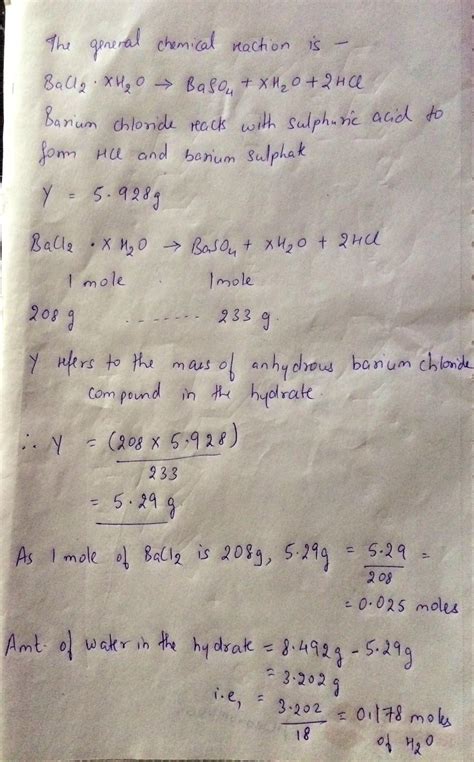 The general chemical reaction is -
BaCl2 · XH2O → BaSO4 + XH2O + 2HCl
Barium chloride reacts with sulphuric acid to
form HCl and barium sulphate
Y = 5.928g
BaCl2 · XH2O → BaSO4 + XH2O + 2HCl
1 mole 1 mole
208 g ....... 233 g.
Y refers to the mass of anhydrous barium chloride
compound in the hydrate.
∴ Y = (208 × 5.928)
233
= 5.29 g
As 1 mole of BaCl2 is 208g, 5.29g = 5.29 =
208
= 0.025 moles
Amt. of water in the hydrate = 8.492g - 5.29g
= 3.202 g
i.e, = 3.202 = 0.178 moles
18 of H2O